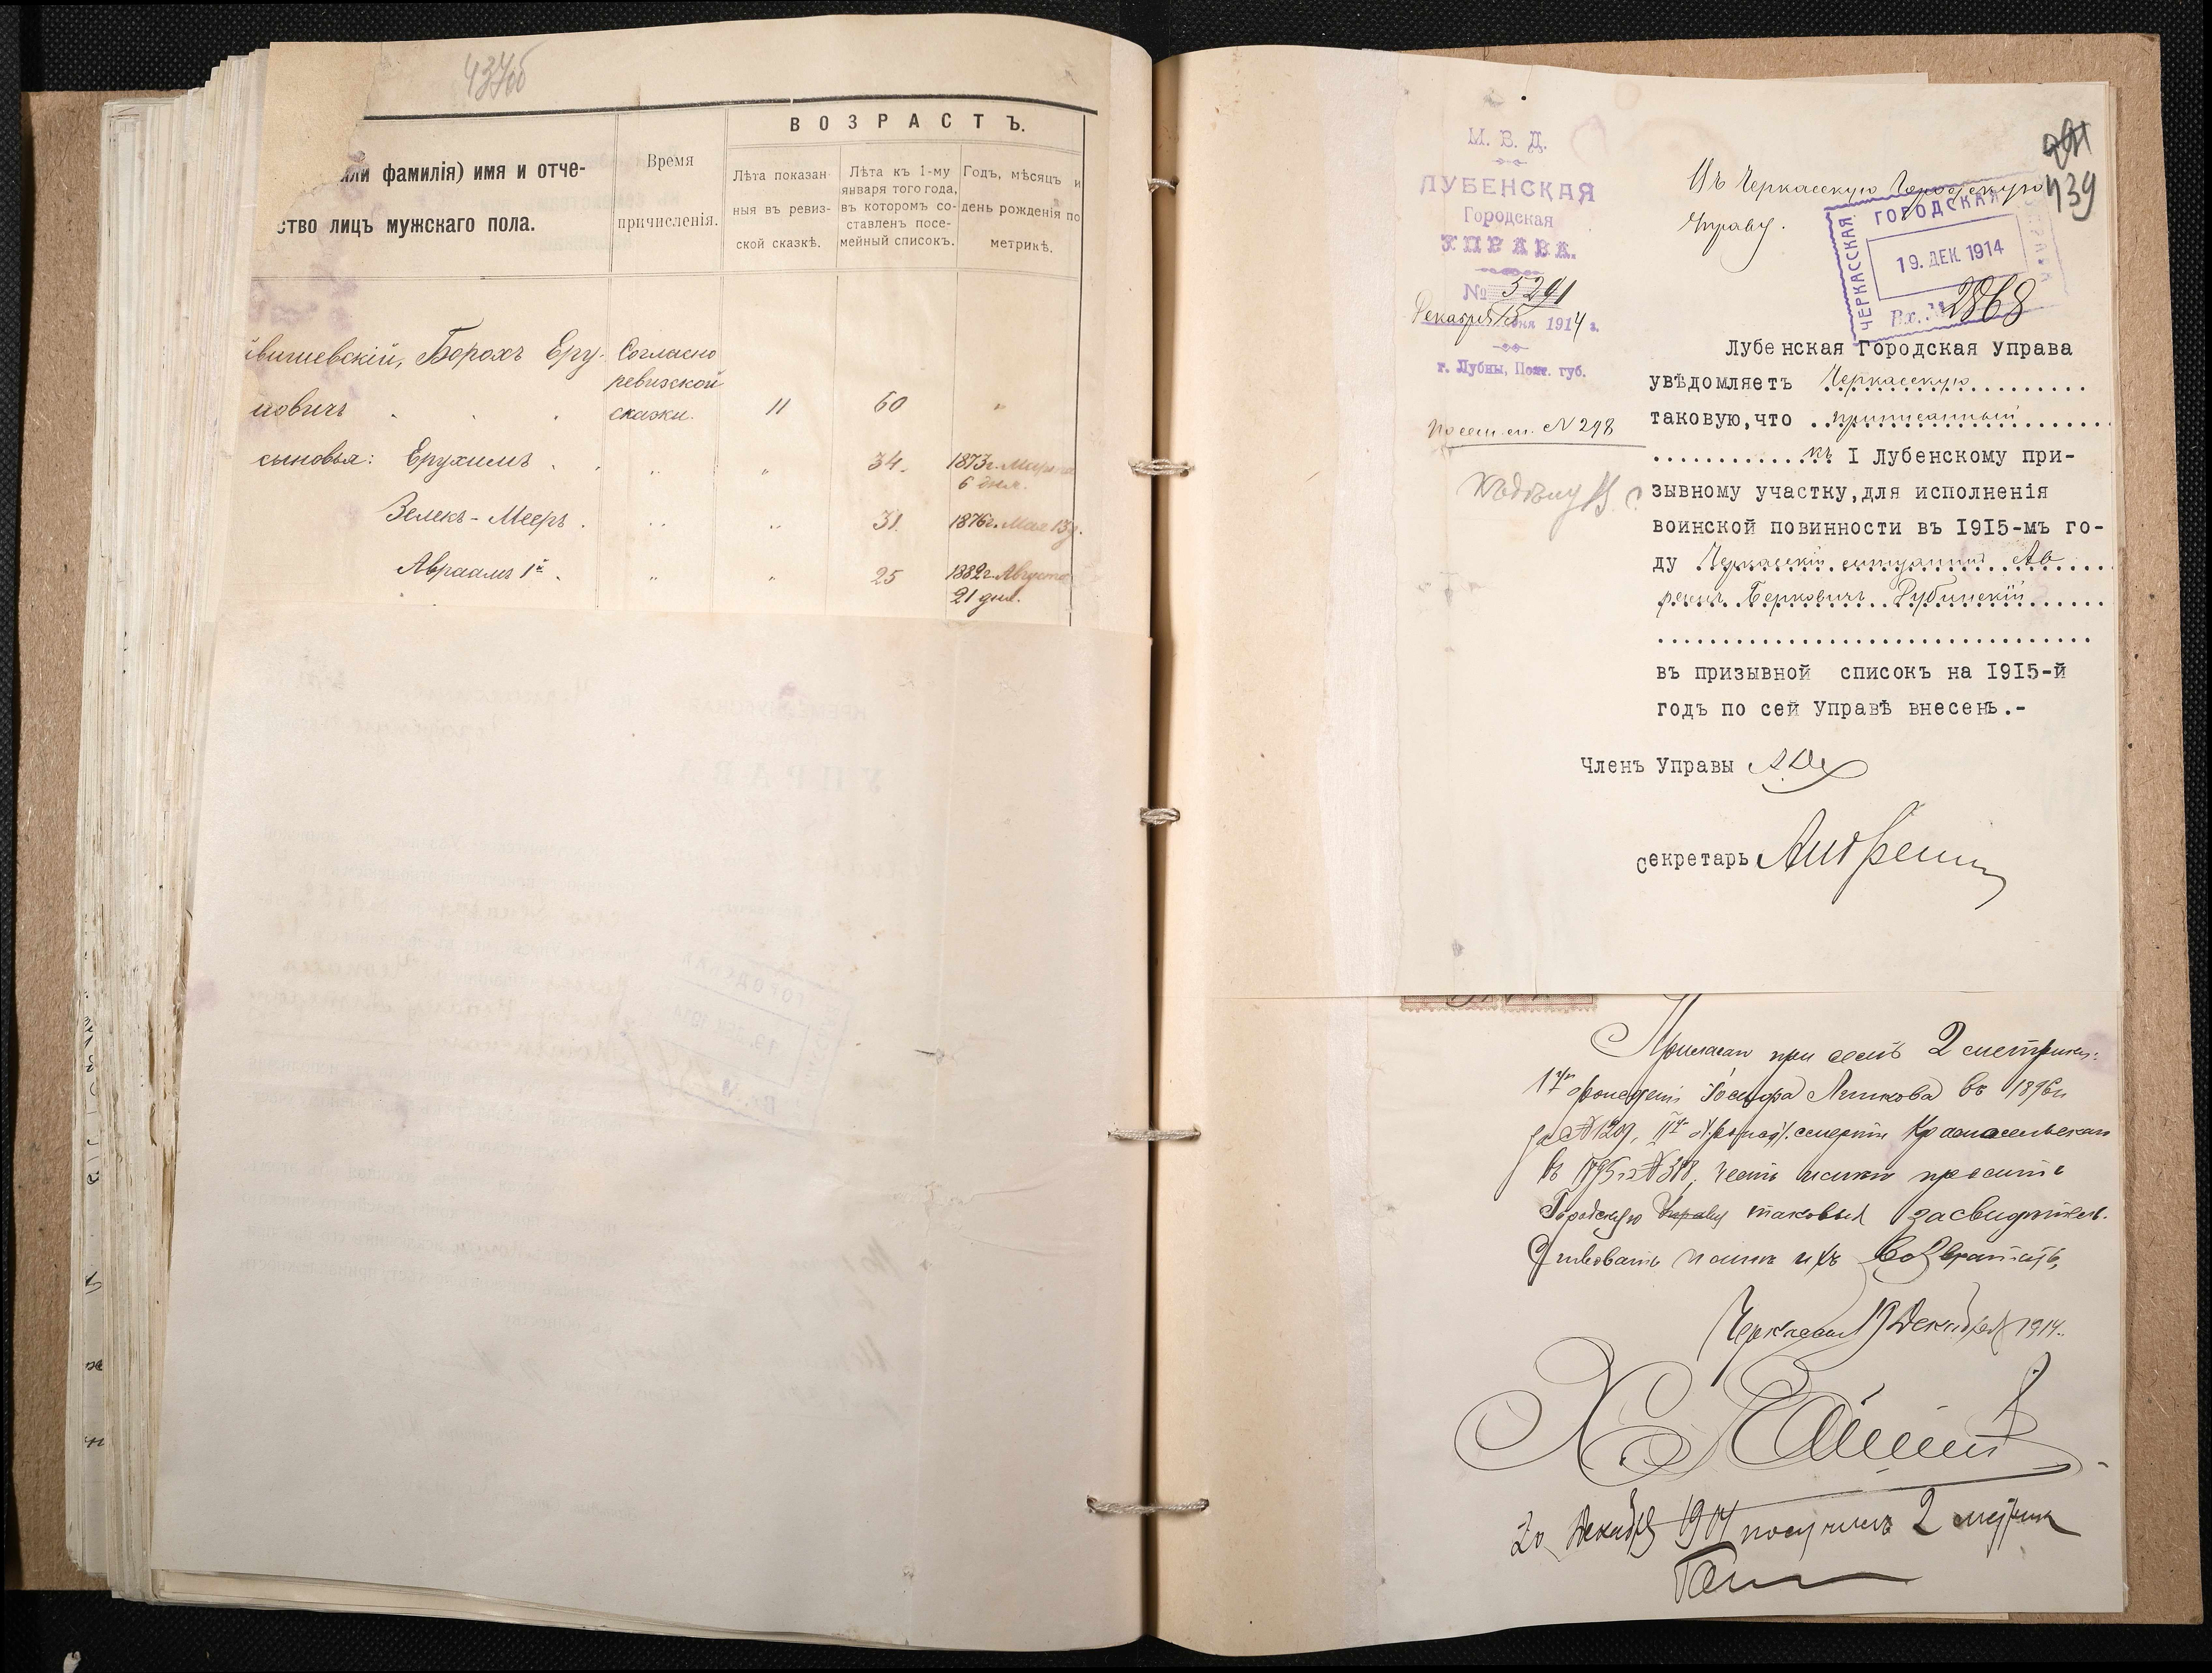 437об
или фамилія) имя и отче-
ство лицъ мужскаго пола.
Время
причисленія.
ВОЗРАСТЪ.
Лѣта показан-
ныя въ ревиз-
ской сказкѣ.
Лѣта къ 1-му
января того года,
въ которомъ со-
ставленъ посе-
мейный списокъ.
Годъ, мѣсяцъ и
день рожденія по
метрикѣ.
вишевскій, Борохъ Еру-
мовичъ
Согласно
ревизской
сказки.
11
60
"
сыновья: Ерухимъ
"
"
34.
1873г. Марта
6 дня.
Зелекъ-Мееръ.
"
"
31.
1876г. Мая 13д.
Авраамъ 1й
"
"
25
1882г. Августа
21 дня.
439
М. В. Д.
ЛУБЕНСКАЯ
Городская
УПРАВА.
№ 5291
Декабря 15 дня 1914 г.
г. Лубны, Полт. губ.
По сем. сп. № 298
Въ Черкасскую Городскую
Управу.
ЧЕРКАССКАЯ
ГОРОДСКАЯ
19. ДЕК. 1914
Вх. № 2868
Лубенская Городская Управа
увѣдомляетъ Черкасскую
таковую, что приписанный
къ I Лубенскому при-
зывному участку, для исполненія
воинской повинности въ 1915-мъ го-
ду Черкасскій мѣщанинъ Аб
Берковичъ Рубинскій
въ призывной списокъ на 1915-й
годъ по сей Управѣ внесенъ.-
Членъ Управы
Секретарь
Прилагая при семъ 2 метрики:
Іосифа въ 1896г
за № 1209, смерти
въ 1895г № 318, честь имѣю просить
Городскую Управу таковыя засвидѣтель-
ствовать и ихъ возвратить,
Черкассы 19 Декабря 1914.
20 Декабря 1914 получилъ 2 метрики